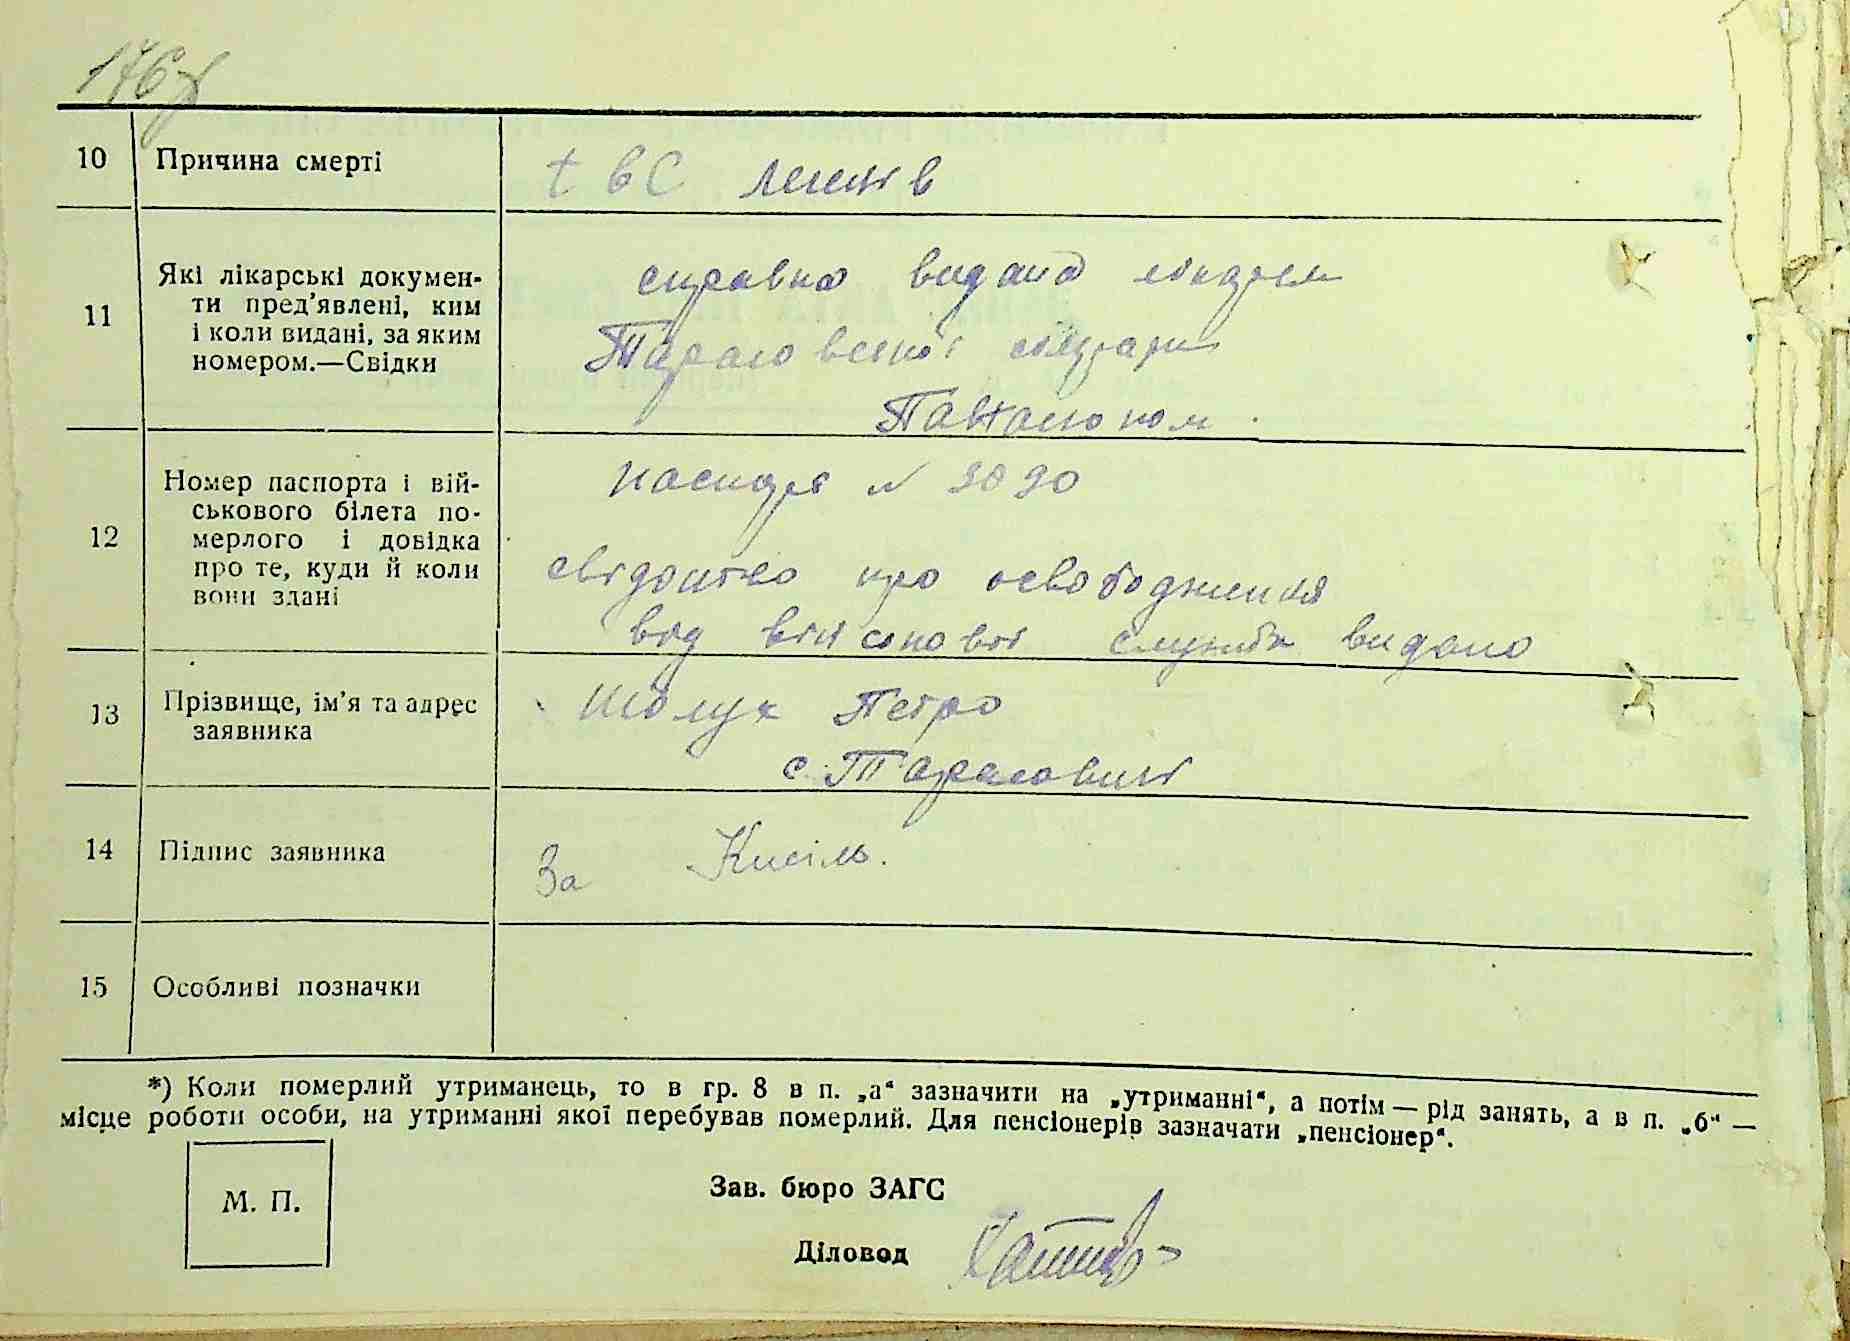 10 Причина смерті
tвС легенів
11 Які лікарські докумен-
ти пред’явлені, ким
і коли видані, за яким
номером.—Свідки
справка видана лікарем
Тарасовської
12 Номер паспорта і вій-
ськового білета по-
мерлого і довідка
про те, куди й коли
вони здані
№ 3090
свідоцтво про освободження
від військової служби видано
13 Прізвище, ім’я та адрес
заявника
Петро
с. Тарасовині
14 Підпис заявника
За Кисіль.
15 Особливі позначки
*) Коли померлий утриманець, то в гр. 8 в п. „а“ зазначити на „утриманні“, а потім — рід занять, а в п. „б“ —
місце роботи особи, на утриманні якої перебував померлий. Для пенсіонерів зазначати „пенсіонер“.
М. П.
Зав. бюро ЗАГС
Діловод